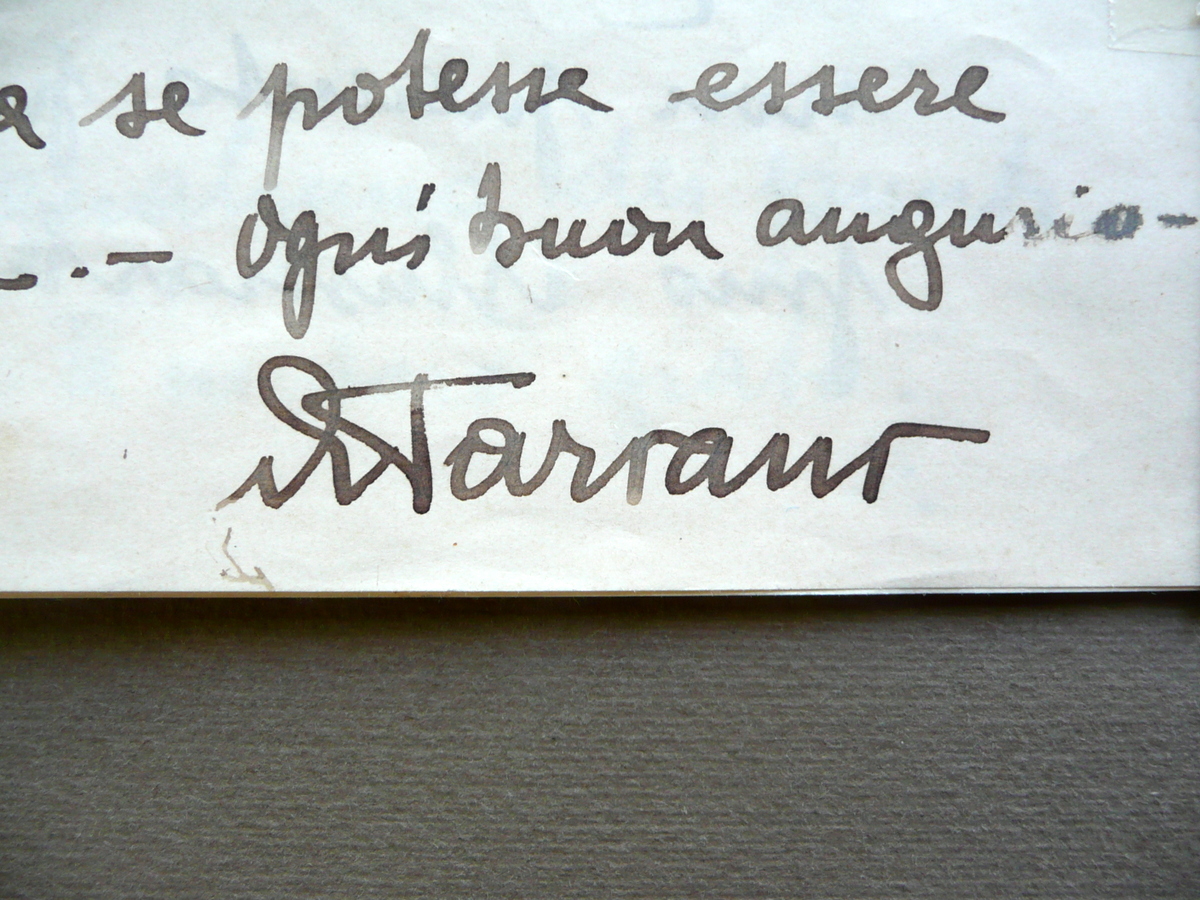 se potesse essere
.– Ogni buon augurio–
Tarrant